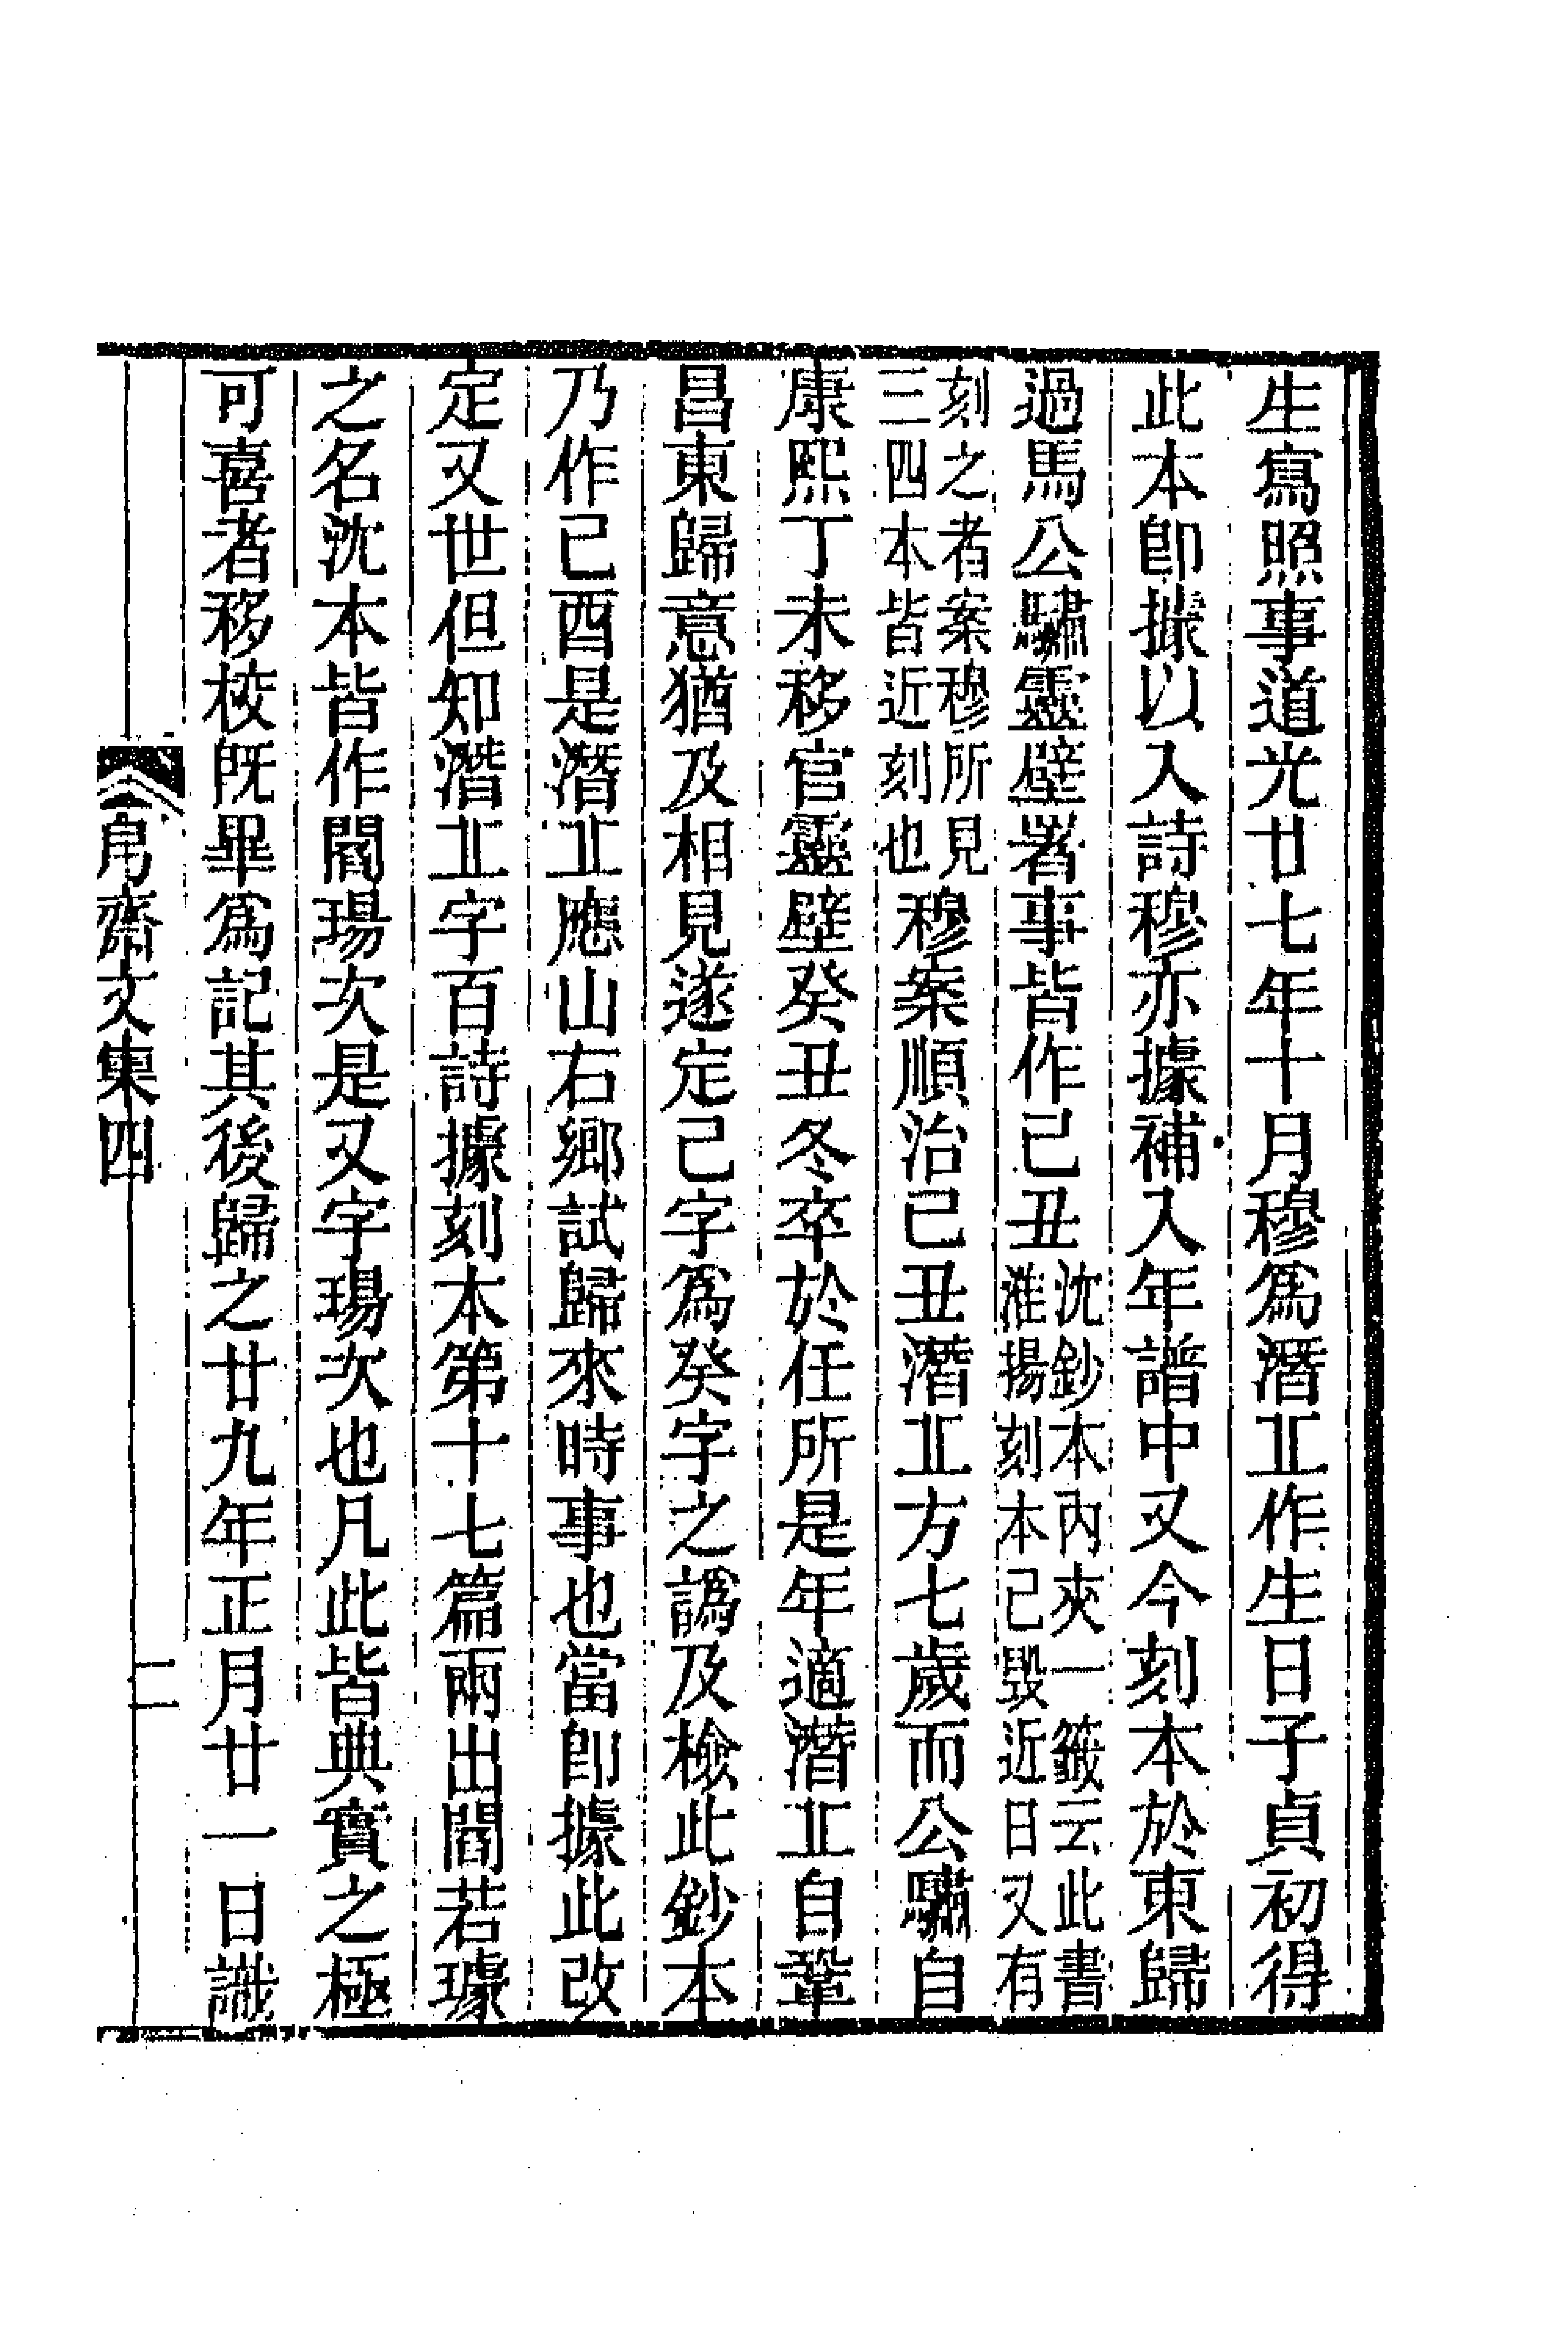 生寫照事道光廿七年十月穆爲潛丘作生日子貞初得
此本卽據以入詩穆亦據補入年譜中又今刻本於東歸
過馬公驌靈壁署事皆作己丑沈鈔本內夾一籤云此書
淮揚刻本已毀近日又有
刻之者案穆所見
三四本皆近刻也穆案順治己丑潛丘方七歲而公驌自
康熙丁未移官靈壁癸丑冬卒於任所是年適潛丘自鞏
昌東歸意猶及相見遂定己字爲癸字之譌及檢此鈔本
乃作己酉是潛丘應山右鄉試歸來時事也當卽據此改
定又世但知潛丘字百詩據刻本第十七篇兩出閻若璩
之名沈本皆作閻瑒次是又字瑒次也凡此皆典實之極
可喜者移校既畢爲記其後歸之廿九年正月廿一日識
㐆齋文集四
二